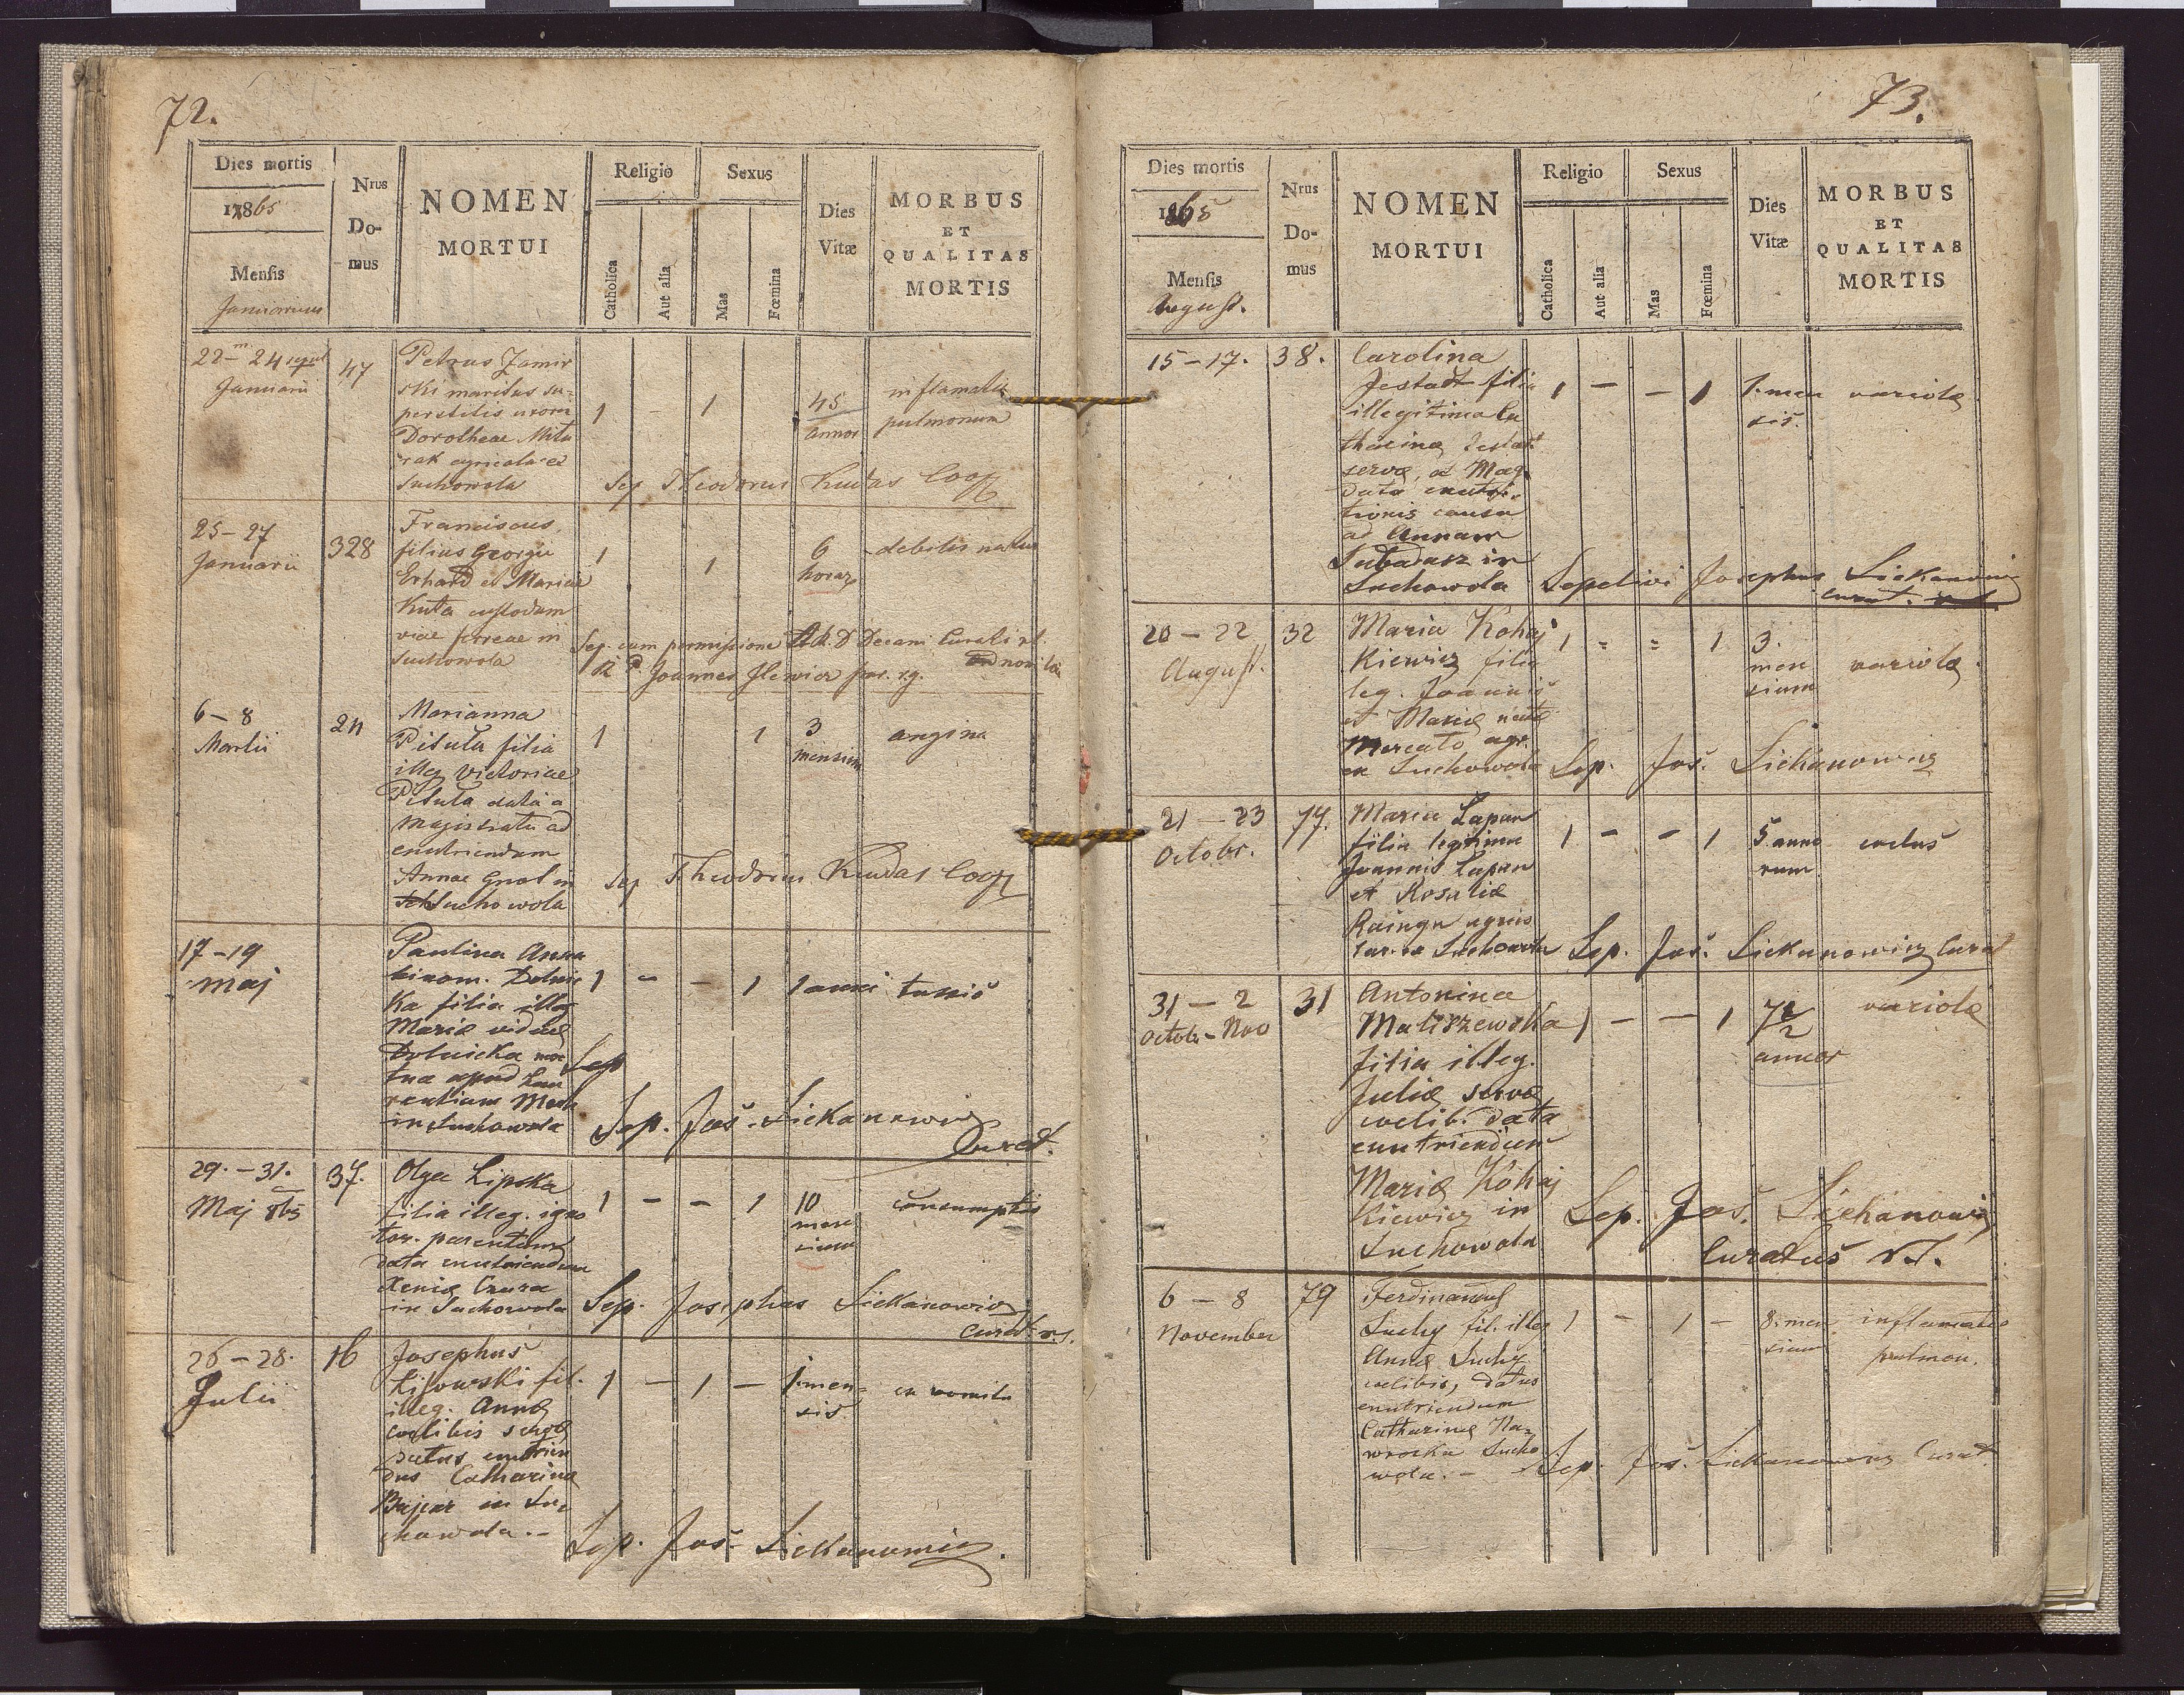 72.
Dies mortis
1865
Mensis
Januarius
Nrus
Do-
mus
NOMEN
MORTUI
Religio
Catholica
Aut alia
Sexus
Mas
Fœmina
Dies
Vitæ
MORBUS
ET
QUALITAS
MORTIS
22 m 24 sepul
Januarii
47
Petrus Jamir
ski maritus su-
perstitis uxoris
Dorotheae Mitu
rak agricola ex
Suchowola
1
-
1
45
annor
inflamatio
pulmonum
Sep Theodorus Kudas Coop
25-27
Januarii
328
Franciscus
filius Georgii
Erhard et Mariae
Kuta custodum
viae ferreae in
Suchowola
1
1
6
horar
debilis natus
Sep. cum permissione A.R.D Decani Curati rl.
R P. Joannes Ilewicz par. r.g.
6-8
Martii
24
Marianna
Pituła filia
illeg Victoriae
Pituła data a
Magistratu ad
enutriendum
Annae Gnot in
Suchowola
1
1
3
mensium
angina
Sep Theodorus Kudas Coop
17-19
Maj
Paulina Anna
binom. Dolnic
ka filia illeg
Mariæ viduæ
Dolnicka mor
tua apud Lau
rentium
in Suchowola
1
-
-
1
1 anni
tussis
Sep
Sep. Jos. Siekanowicz
Curat.
29.-31.
Maj 865
37.
Olga Lipska
filia illeg. igno
tor. parentum
data enutriendum
Xeniæ Czura
in Suchowola
1
-
-
1
10
men
sium
consumptio
Sep. Josephus Siekanowicz
Curat. r.l.
26-28.
Julii
16
Josephus
Lisowski fil.
illeg. Annæ
cœlibis servæ
datus enutrien
dus Catharinæ
Bajcar in Su-
chowola.-
1
-
1
-
1 men-
sis
ex vomitu
Sep. Jos. Siekanowicz.
73.
Dies mortis
1865
Mensis
August.
Nrus
Do-
mus
NOMEN
MORTUI
Religio
Catholica
Aut alia
Sexus
Mas
Fœmina
Dies
Vitæ
MORBUS
ET
QUALITAS
MORTIS
15-17.
38.
Carolina
Jestadt filia
illegitima Ca
tharinæ Jestadt
servæ, a Mag.
data enutri-
tionis causa
ad Annam
Subadasz in
Suchowola
1
-
-
1
1. men
sis.
variolæ
Sepelivi Josephus Siekanowicz
curat.
20-22
August.
32
Maria Kohaj
kiewicz filia
leg. Joannis
et Mariæ natæ
Mercato agr.
ex Suchowola
1
=
=
1
3.
men
sium
variolæ
Sep. Jos. Siekanowicz
21-23
Octobr.
77.
Maria Łapan
filia legitima
Joannis Łapan
et Rosaliæ
Rainga agrico
lar. ex Suchowola
1
-
-
1
5 anno
rum
Sep. Jos. Siekanowicz Curat
31-2
Octobr-Nov
31
Antonina
Maliszewska
filia illeg.
Juliæ servæ
cœlib. data
enutriendum
Mariæ Kohaj
kiewicz in
Suchowola
1
-
-
1
7 1/2
annor
variolæ
Sep. Jos. Siekanowicz
Curatus r.l.
6-8
November
79
Ferdinandus
Suchy fil. illeg
Annæ Suchy
cœlibis, datus
enutriendum
Catharinæ Na-
wrocka Sucho
wola.-
1
-
1
-
8. men
sium
inflamatio
pulmon.
Sep. Jos. Siekanowicz Curat.